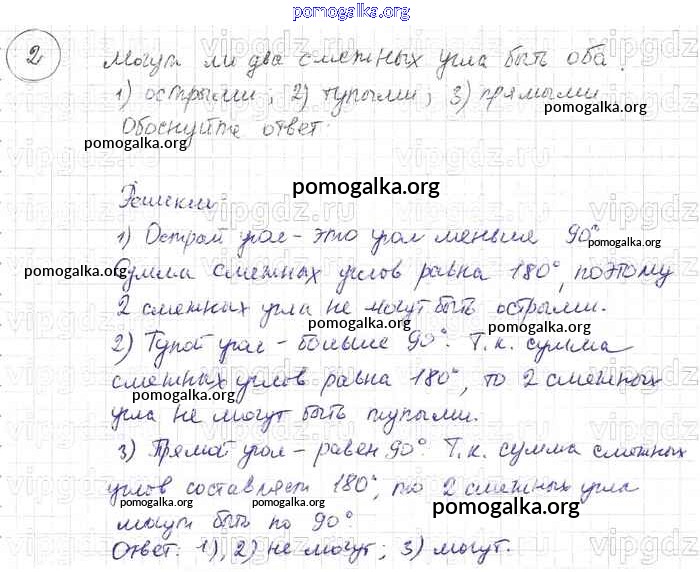 pomogalka.org
2
Могут ли два смежных угла быть оба:
1) острыми; 2) тупыми; 3) прямыми
pomogalka.org
Обоснуйте ответ.
pomogalka.org
Решение
pomogalka.org
1) Острый угол - это угол меньше 90°
pomogalka.org
pomogalka.org
Сумма смежных углов равна 180°, поэтому
2 смежных угла не могут быть острыми.
pomogalka.org
2) Тупой угол - больше 90°. Т.к. сумма
pomogalka.org
смежных углов равна 180°, то 2 смежных
pomogalka.org
угла не могут быть тупыми.
3) Прямой угол - равен 90°. Т.к. сумма смежных
углов составляет 180°, то 2 смежных угла
pomogalka.org
pomogalka.org
могут быть по 90°
Ответ: 1), 2) не могут; 3) могут.